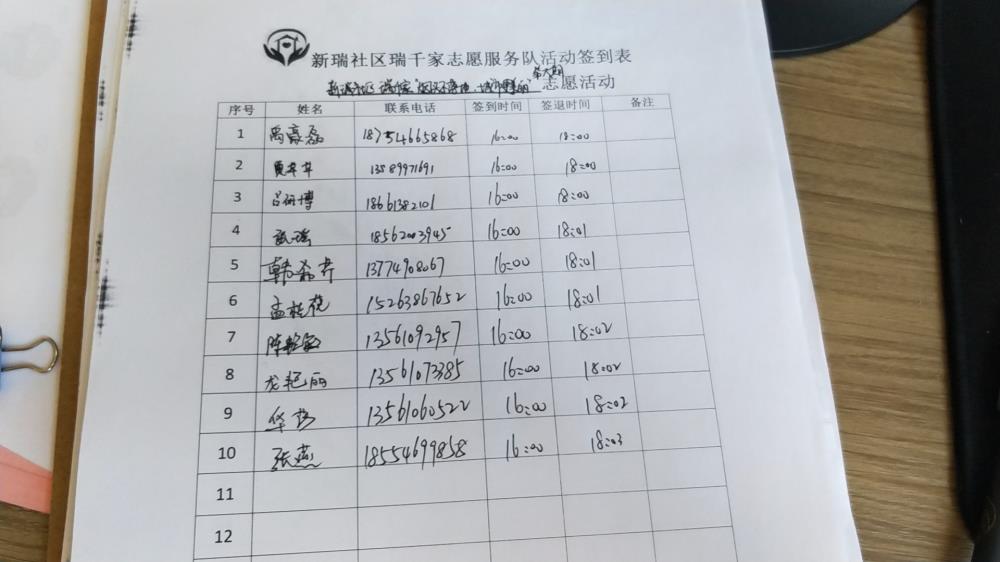 新瑞社区瑞千家志愿服务队活动签到表
志愿活动
序号 姓名 联系电话 签到时间 签退时间 备注
1 禹豪磊 18754665868 16:00 18:00
2 13589971691 16:00 18:00
3 吕研博 18661382101 16:00 18:00
4 18562003945 16:00 18:01
5 韩希芹 13774908067 16:00 18:01
6 孟桂花 15263867652 16:00 18:01
7 13561092957 16:00 18:02
8 龙艳丽 13561073385 16:00 18:02
9 13561060522 16:00 18:02
10 张燕 18554699858 16:00 18:03
11
12